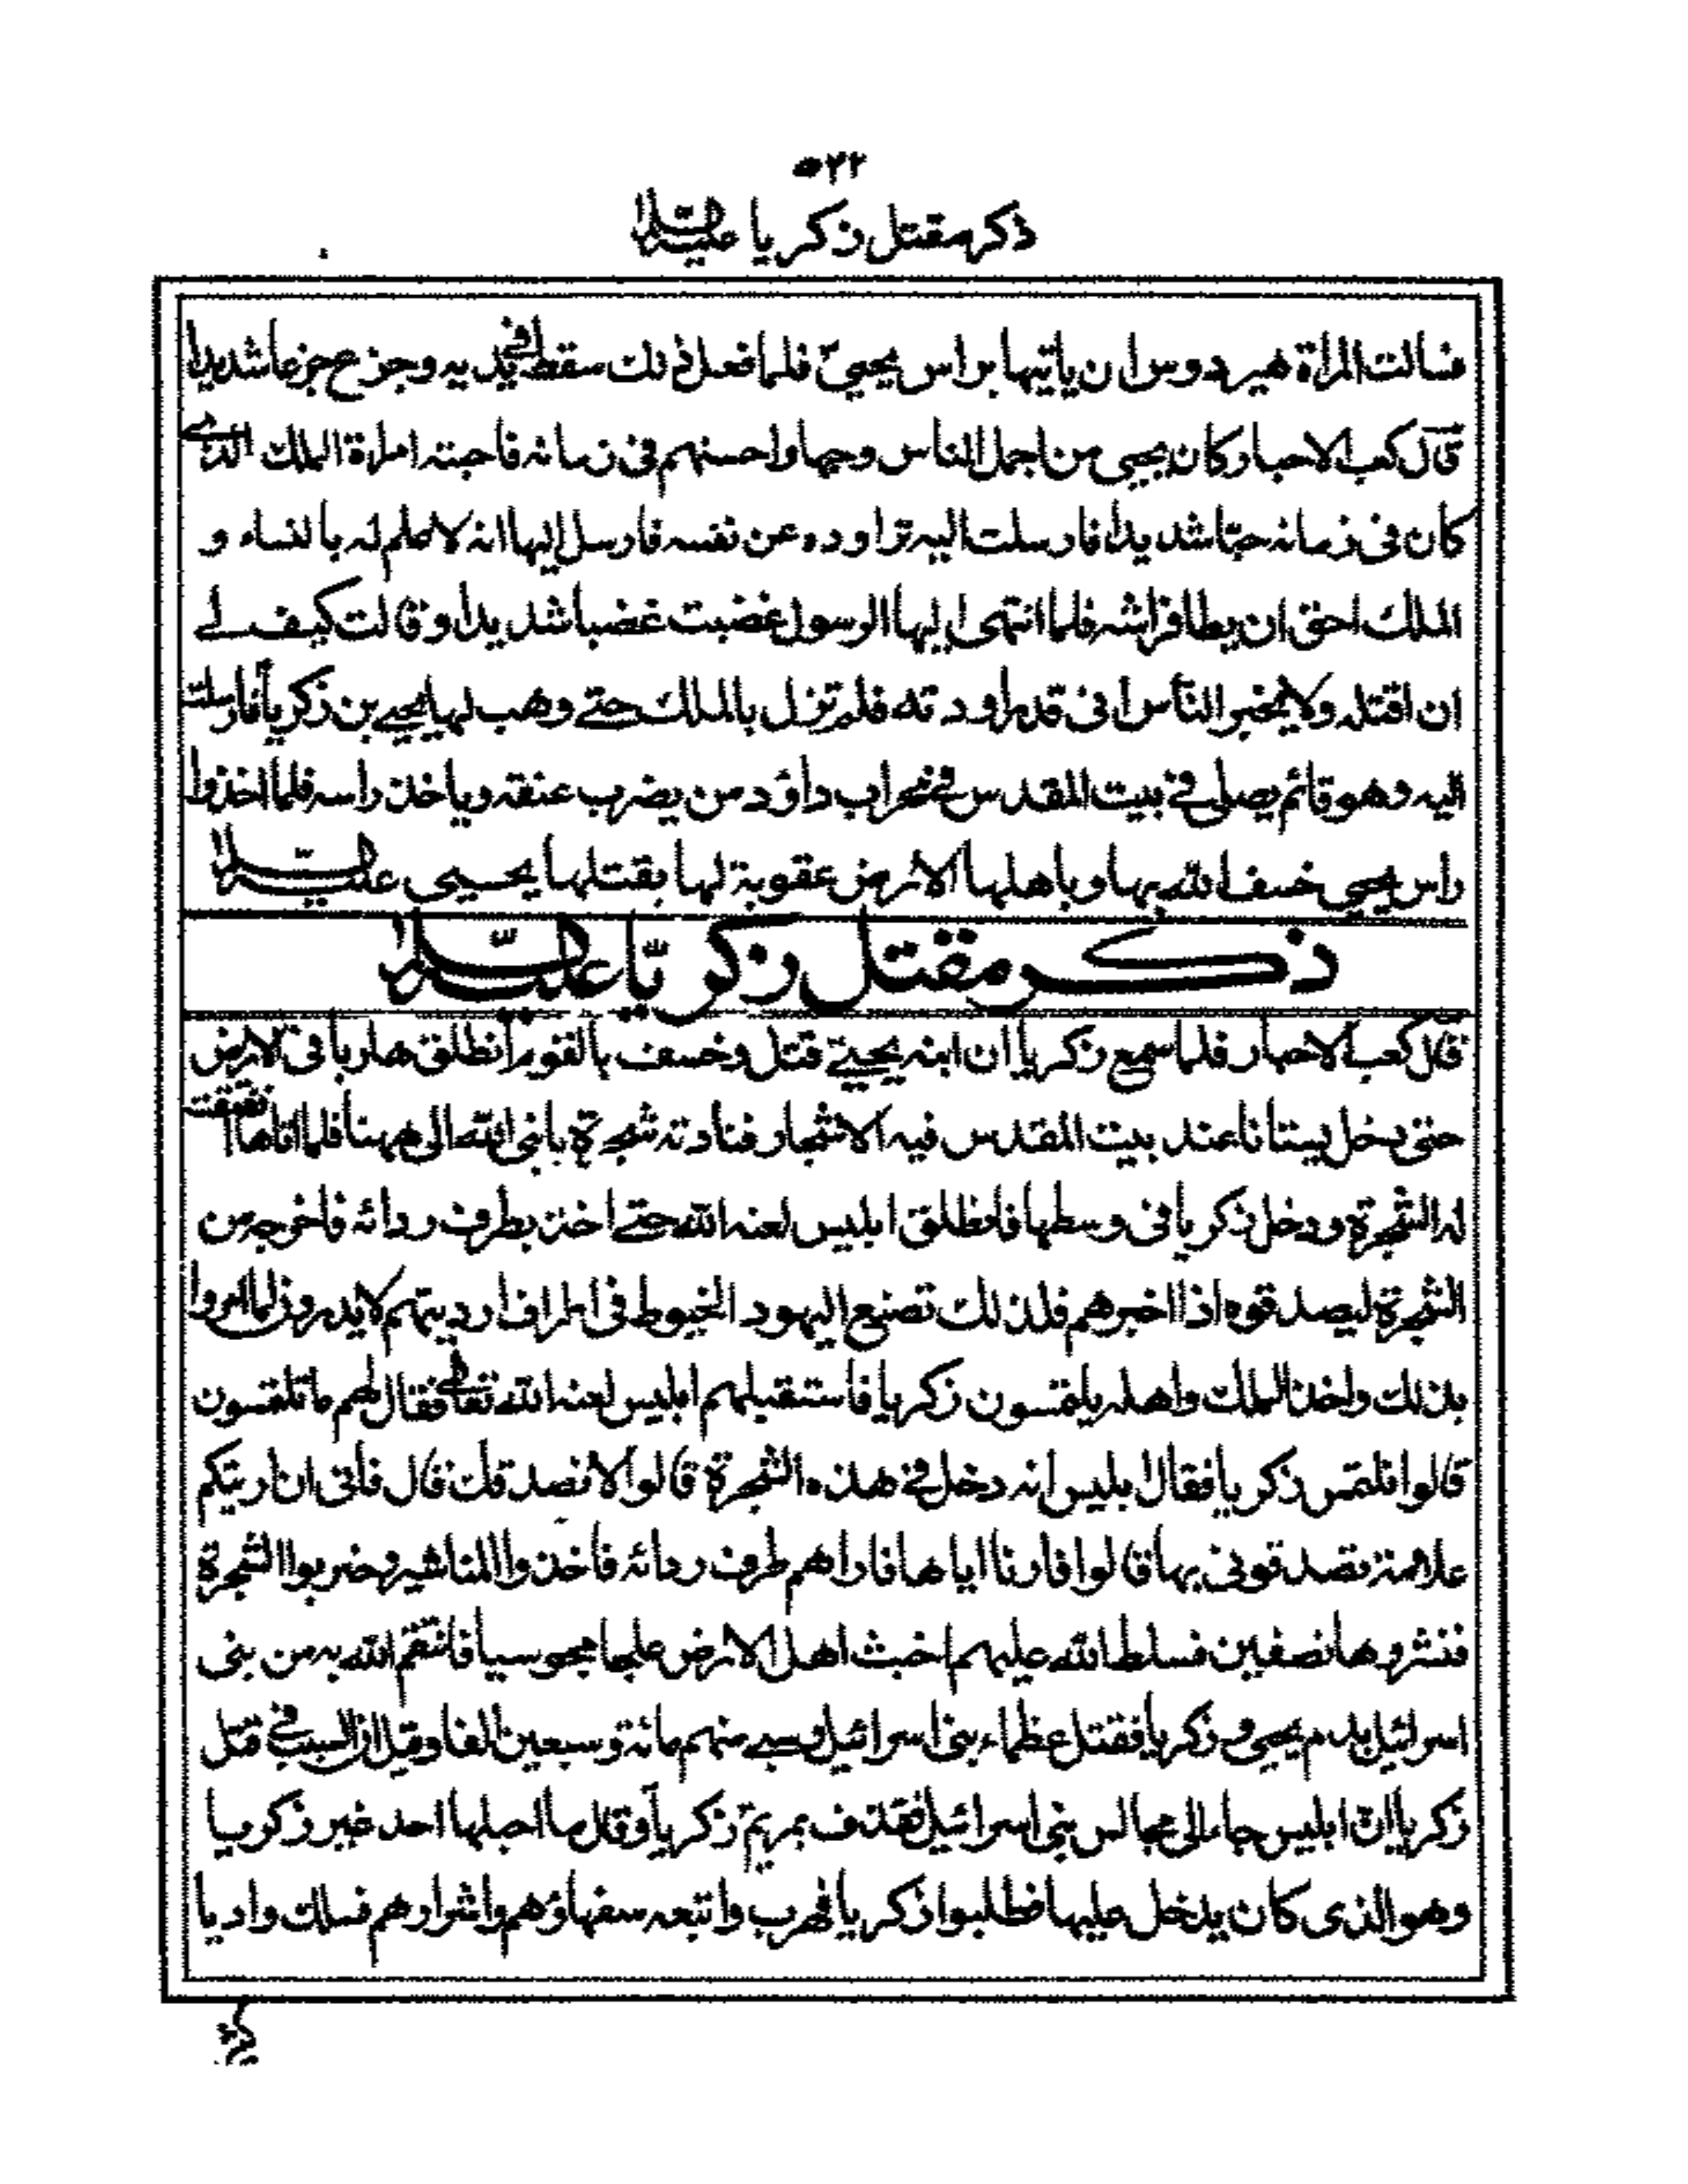 ٥٢٢
ذكر مقتل زكريا عليه السلام
فسالت المراة هيردوس ان ياتيها براس يحيىٰ فلما فعل ذلك سقط فى يديه وجزع جزعا شديدا
قال كعب الاحبار كان يحيى من اجمل الناس وجها واحسنهم فى زمانه فاحبته امراة الملك الذى
كان فى زمانه حبّا شديدا فارسلت اليه تراوده عن نفسه فارسل اليها انه لا علم له بالنساء و
الملك احق ان يطا فراشه فلما انتهى اليها الرسول غضبت غضبا شديدا وقالت كيف لى
ان اقتله ولا يخبر الناس انى قد راودته فلم تزل بالملك حتى وهب لها يحيى بن زكريا فارسلت
اليه وهو قائم يصلى فى بيت المقدس فى محراب داؤد من يضرب عنقه وياخذ راسه فلما اخذوا
راس يحيى خسف الله بها وباهلها الارض عقوبة لها بقتلها يحيى عليه السلام
ذكر مقتل زكريّا عليه السلام
قال كعب الاحبار فلما سمع زكريا ان ابنه يحيى قتل وخسف بالقوم انطلق هاربا فى الارض
حتى دخل بستانا عند بيت المقدس فيه الاشجار فنادته شجرة يا نبى الله الى ههنا فلما اتاها انفتقت
له الشجرة ودخل زكريا فى وسطها فانطلق ابليس لعنه الله حتى اخذ بطرف ردائه فاخرجه من
الشجرة ليصدقوه اذا اخبرهم فلذلك تصنع اليهود الخيوط فى اطراف ارديتهم لا يدرون لما امروا
بذلك واخذ الملك واهله يلتمسون زكريا فاستقبلهم ابليس لعنه الله تعالى فقال لهم ما تلتمسون
قالوا نلتمس زكريا فقال ابليس انه دخل فى هذه الشجرة قالوا لا نصدقك قال فانى ان اريتكم
علامة تصدقونى بها قالوا فارنا اياها فاراهم طرف ردائه فاخذوا المناشير وضربوا الشجرة
فنشروها نصفين فسلط الله عليهم اخبث اهل الارض علجا مجوسيا فانتقم الله به من بنى
اسرائيل بدم يحيى و زكريا فقتل عظماء بنى اسرائيل وسبى منهم مائة وسبعين الفا وقيل ان السبب فى قتل
زكريا ان ابليس جاء الى مجالس بنى اسرائيل فقذف بمريم زكريا وقال ما احبلها احد غير زكريا
وهو الذى كان يدخل عليها فطلبوا زكريا فهرب واتبعه سفهاؤهم واشرارهم فسلك واديا